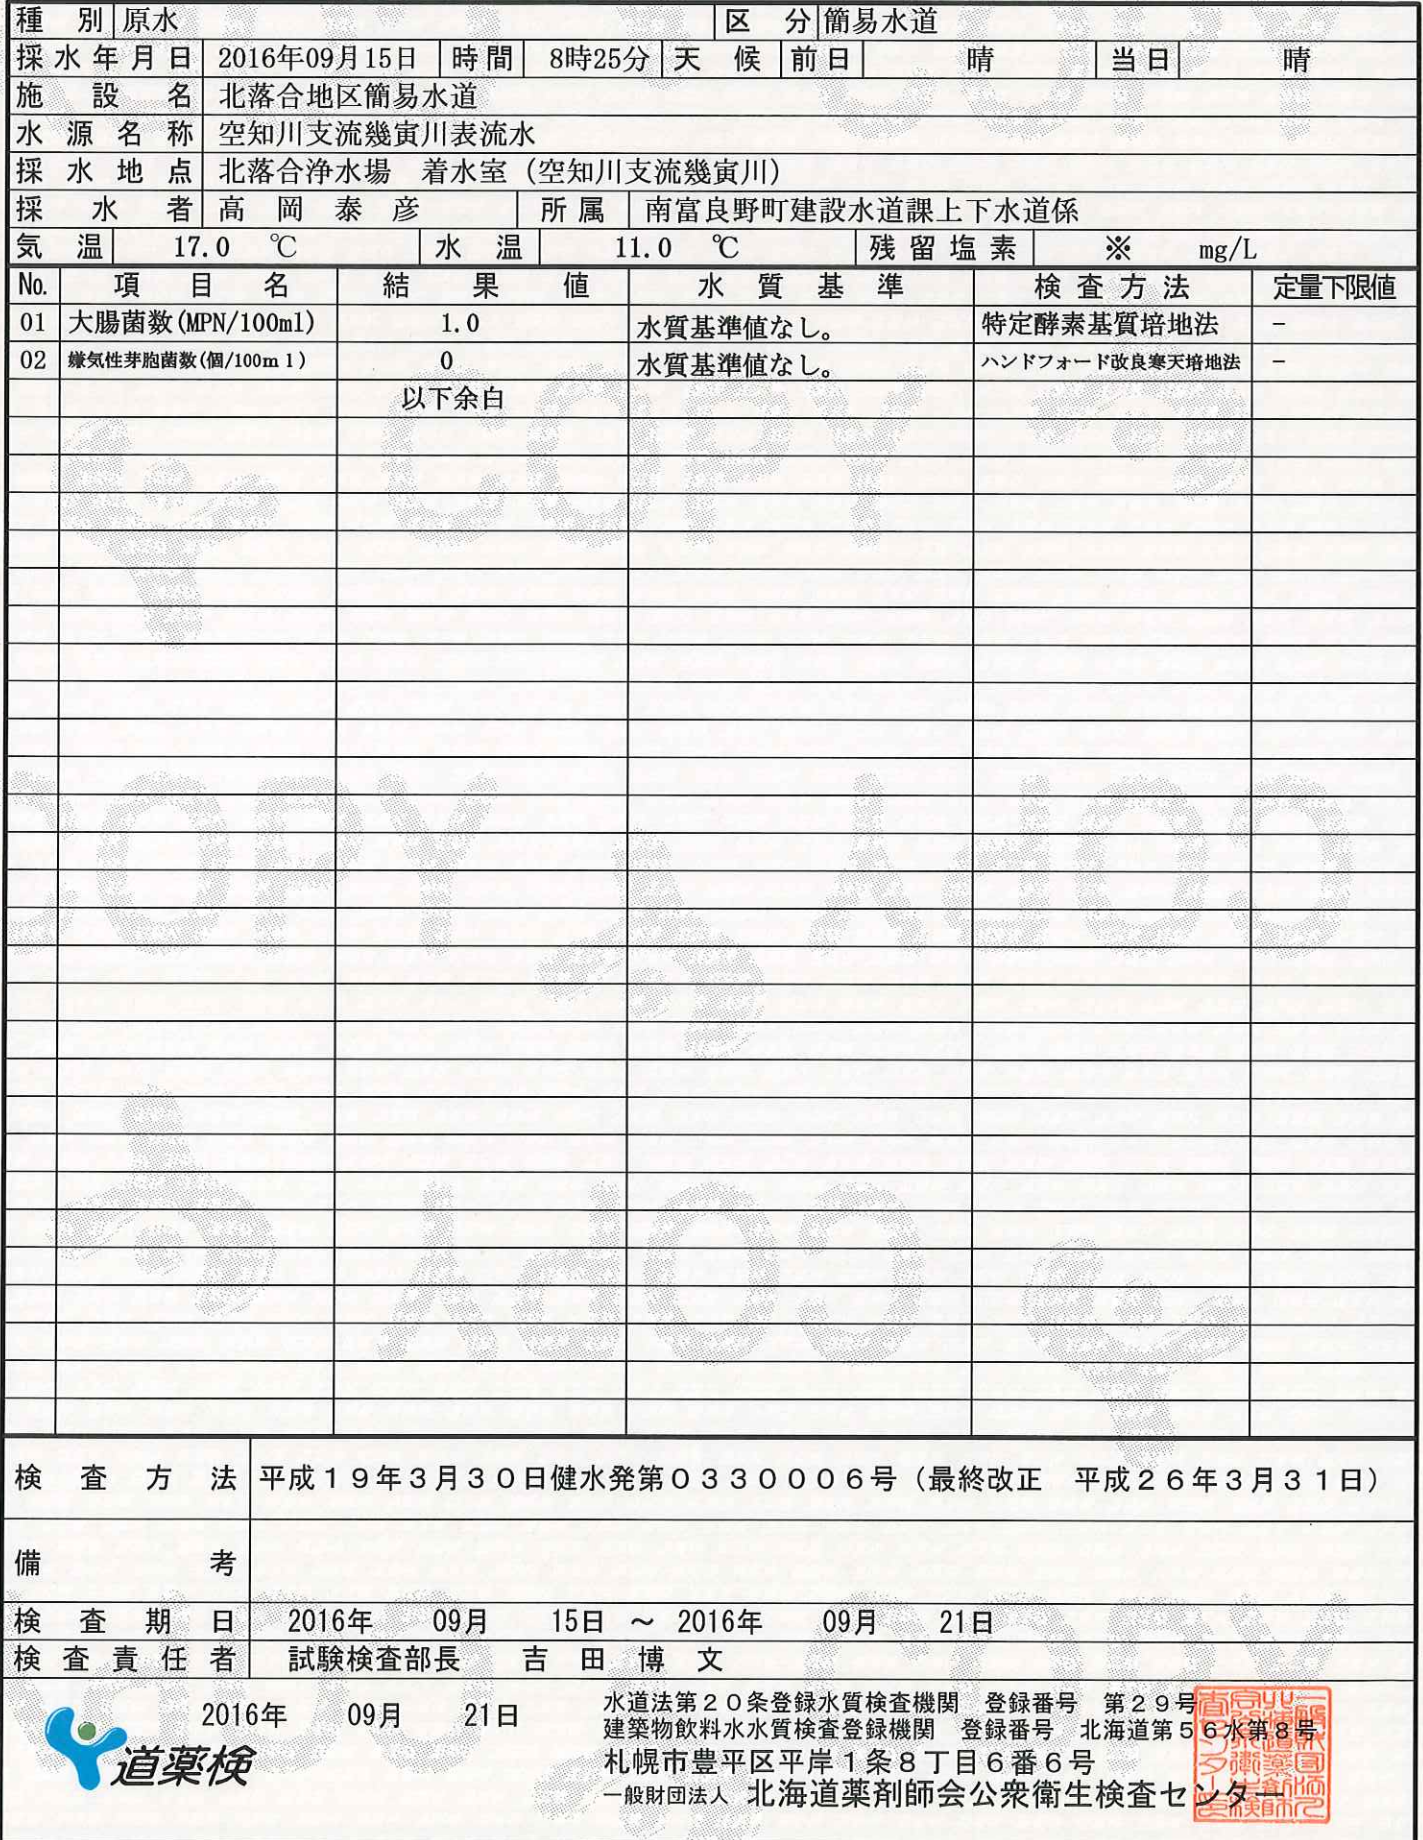 種 別 原水 区 分 簡易水道
採水年月日 2016年09月15日 時間 8時25分 天 候 前日 晴 当日 晴
施 設 名 北落合地区簡易水道
水 源 名 称 空知川支流幾寅川表流水
採 水 地 点 北落合浄水場 着水室（空知川支流幾寅川）
採 水 者 高 岡 泰 彦 所属 南富良野町建設水道課上下水道係
気 温 17.0 ℃ 水 温 11.0 ℃ 残留塩素 ※ mg/L
No. 項 目 名 結 果 値 水 質 基 準 検 査 方 法 定量下限値
01 大腸菌数(MPN/100ml) 1.0 水質基準値なし。 特定酵素基質培地法 －
02 嫌気性芽胞菌数(個/100ml) 0 水質基準値なし。 ハンドフォード改良寒天培地法 －
以下余白
COPY
COPY
COPY
COPY
検 査 方 法 平成１９年３月３０日健水発第０３３０００６号（最終改正 平成２６年３月３１日）
備 考
検 査 期 日 2016年 09月 15日 ～ 2016年 09月 21日
検 査 責 任 者 試験検査部長 吉 田 博 文
2016年 09月 21日
道薬検
水道法第２０条登録水質検査機関 登録番号 第２９号
建築物飲料水水質検査登録機関 登録番号 北海道第５６水第８号
札幌市豊平区平岸１条８丁目６番６号
一般財団法人 北海道薬剤師会公衆衛生検査センター